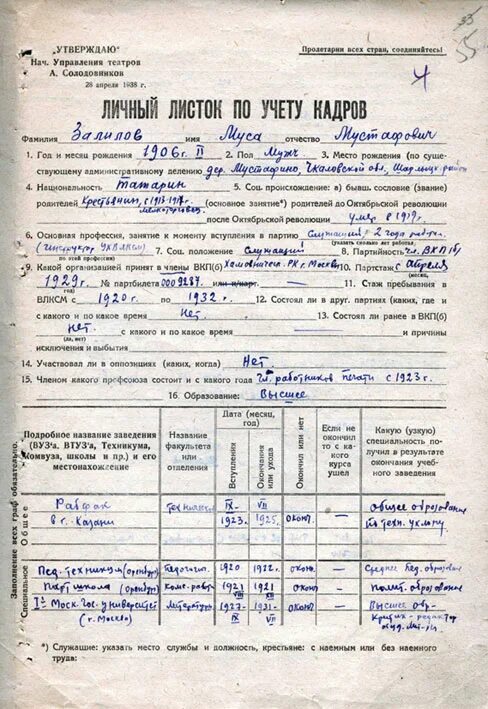 33
55
„УТВЕРЖДАЮ"
Нач. Управления театров
А. Солодовников
28 апреля 1938 г.
Пролетарии всех стран, соединяйтесь!
4
ЛИЧНЫЙ ЛИСТОК ПО УЧЕТУ КАДРОВ
Фамилия Залилов имя Муса отчество Мустафович
1. Год и месяц рождения 1906 г. II 2. Пол Мужч 3. Место рождения (по суще-
ствующему административному делению) дер. Мустафино, Чкаловской обл, Шарлыкск. район
4. Национальность Татарин 5. Соц. происхождение: а) бывш. сословие (звание)
родителей Крестьянин, с 1913-1917г. (основное занятие*) родителей до Октябрьской революции
после Октябрьской революции умер в 1919 г.
6. Основная профессия, занятие к моменту вступления в партию Служащий 2 года работы
(указать сколько лет работал,
(инструктор ЧК ВЛКСМ) 7. Соц. положение Служащий 8. Партийность чл. ВКП(б)
по этой профессии)
9. Какой организацией принят в члены ВКП(б) Хамовнич. РК г. Москвы 10. Партстаж с апреля
(месяц,
1929 г. № партбилета 0009287. или к/карт. — 11. Стаж пребывания в
год)
ВЛКСМ с 1920 г. по 1932 г. 12. Состоял ли в друг. партиях (каких, где и
с какого и по какое время Нет. 13. Состоял ли ранее в ВКП(б)
нет. с какого и по какое время — и причины
(да, нет)
исключения и выбытия
14. Участвовал ли в оппозициях (каких, когда) Нет
15. Членом какого профсоюза состоит и с какого года чл. работников печати с 1923 г.
16. Образование: Высшее
Заполнение всех граф обязательно.
Подробное название заведения (ВУЗ'а, ВТУЗ'а, Техникума, Комвуза, школы и пр.) и его местонахождение
Название факультета или отделения
Дата (месяц, год)
Вступления
Окончания или ухода
Окончил или нет
Если не окончил то с какого курса ушел
Какую (узкую) специальность получил в результате окончания учебного заведения
Общее
Рабфак IX- VII
в г. Казани 1923. 1925. оконч. — общее образование по техн. уклону.
Специальное
Пед. техникум (Оренбург) педагогич. 1920 1922 г. окон. — Среднее пед. образов.
Парт школа (Оренбург) 1921 1921 окон. — полит. образование
I й Моск. Гос. университет литературн. 1927- 1931- окон. — Высшее обр-
(г. Москва) XII VIII Критик-редактор
*) Служащие: указать место службы и должность, крестьяне: с наемным или без наемного
труда: